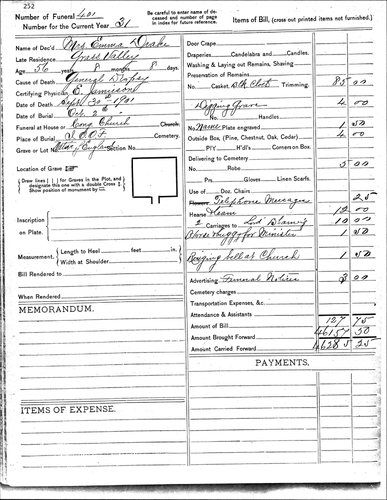 252
Number of Funeral 401
Number for the Current Year 31
Be careful to enter name of deceased and number of page in index for future reference.
Items of Bill, (cross out printed items not furnished.)
Name of Dec'd Mrs Emma Drake
Late Residence Grass Valley
Age 56 years 8 months 8 days.
Cause of Death General Dropsy
Certifying Physician E. Jamison
Date of Death Sept. 30th 1901
Date of Burial Oct. 2d
Funeral at House or Cong Church Church.
Place of Burial I.O.O.F Cemetery.
Grave or Lot No. Section No.
Location of Grave
Draw lines for Graves in the Plot, and designate this one with a double Cross
Show position of monument by
Inscription on Plate.
Measurement. Length to Heel feet in.
Width at Shoulder
Bill Rendered to
When Rendered
MEMORANDUM.
ITEMS OF EXPENSE.
Door Crape
Draperies Candelabra and Candles.
Washing & Laying out Remains, Shaving
Preservation of Remains
No. Casket Blk Cloth Trimming. 85 00
Digging Grave 4 00
No. Handles.
No Name Plate engraved 1 50
Outside Box, (Pine, Chestnut, Oak, Cedar) 4 00
P/L H'd's Corners on Box.
Delivering to Cemetery 5 00
No. Robe
Prs. Gloves. Linen Scarfs.
Use of Doz. Chairs
Flowers Telephone Messages 25
Hearse Team 12 00
2 Carriages to 10 00
Horse & buggy for Minister 1 50
Ringing bell at Church 1 50
Advertising Funeral Notices 3 00
Cemetery charges
Transportation Expenses, &c.
Attendance & Assistants
Amount of Bill 127 75
Amount Brought Forward 46157 50
Amount Carried Forward 46285 25
PAYMENTS.